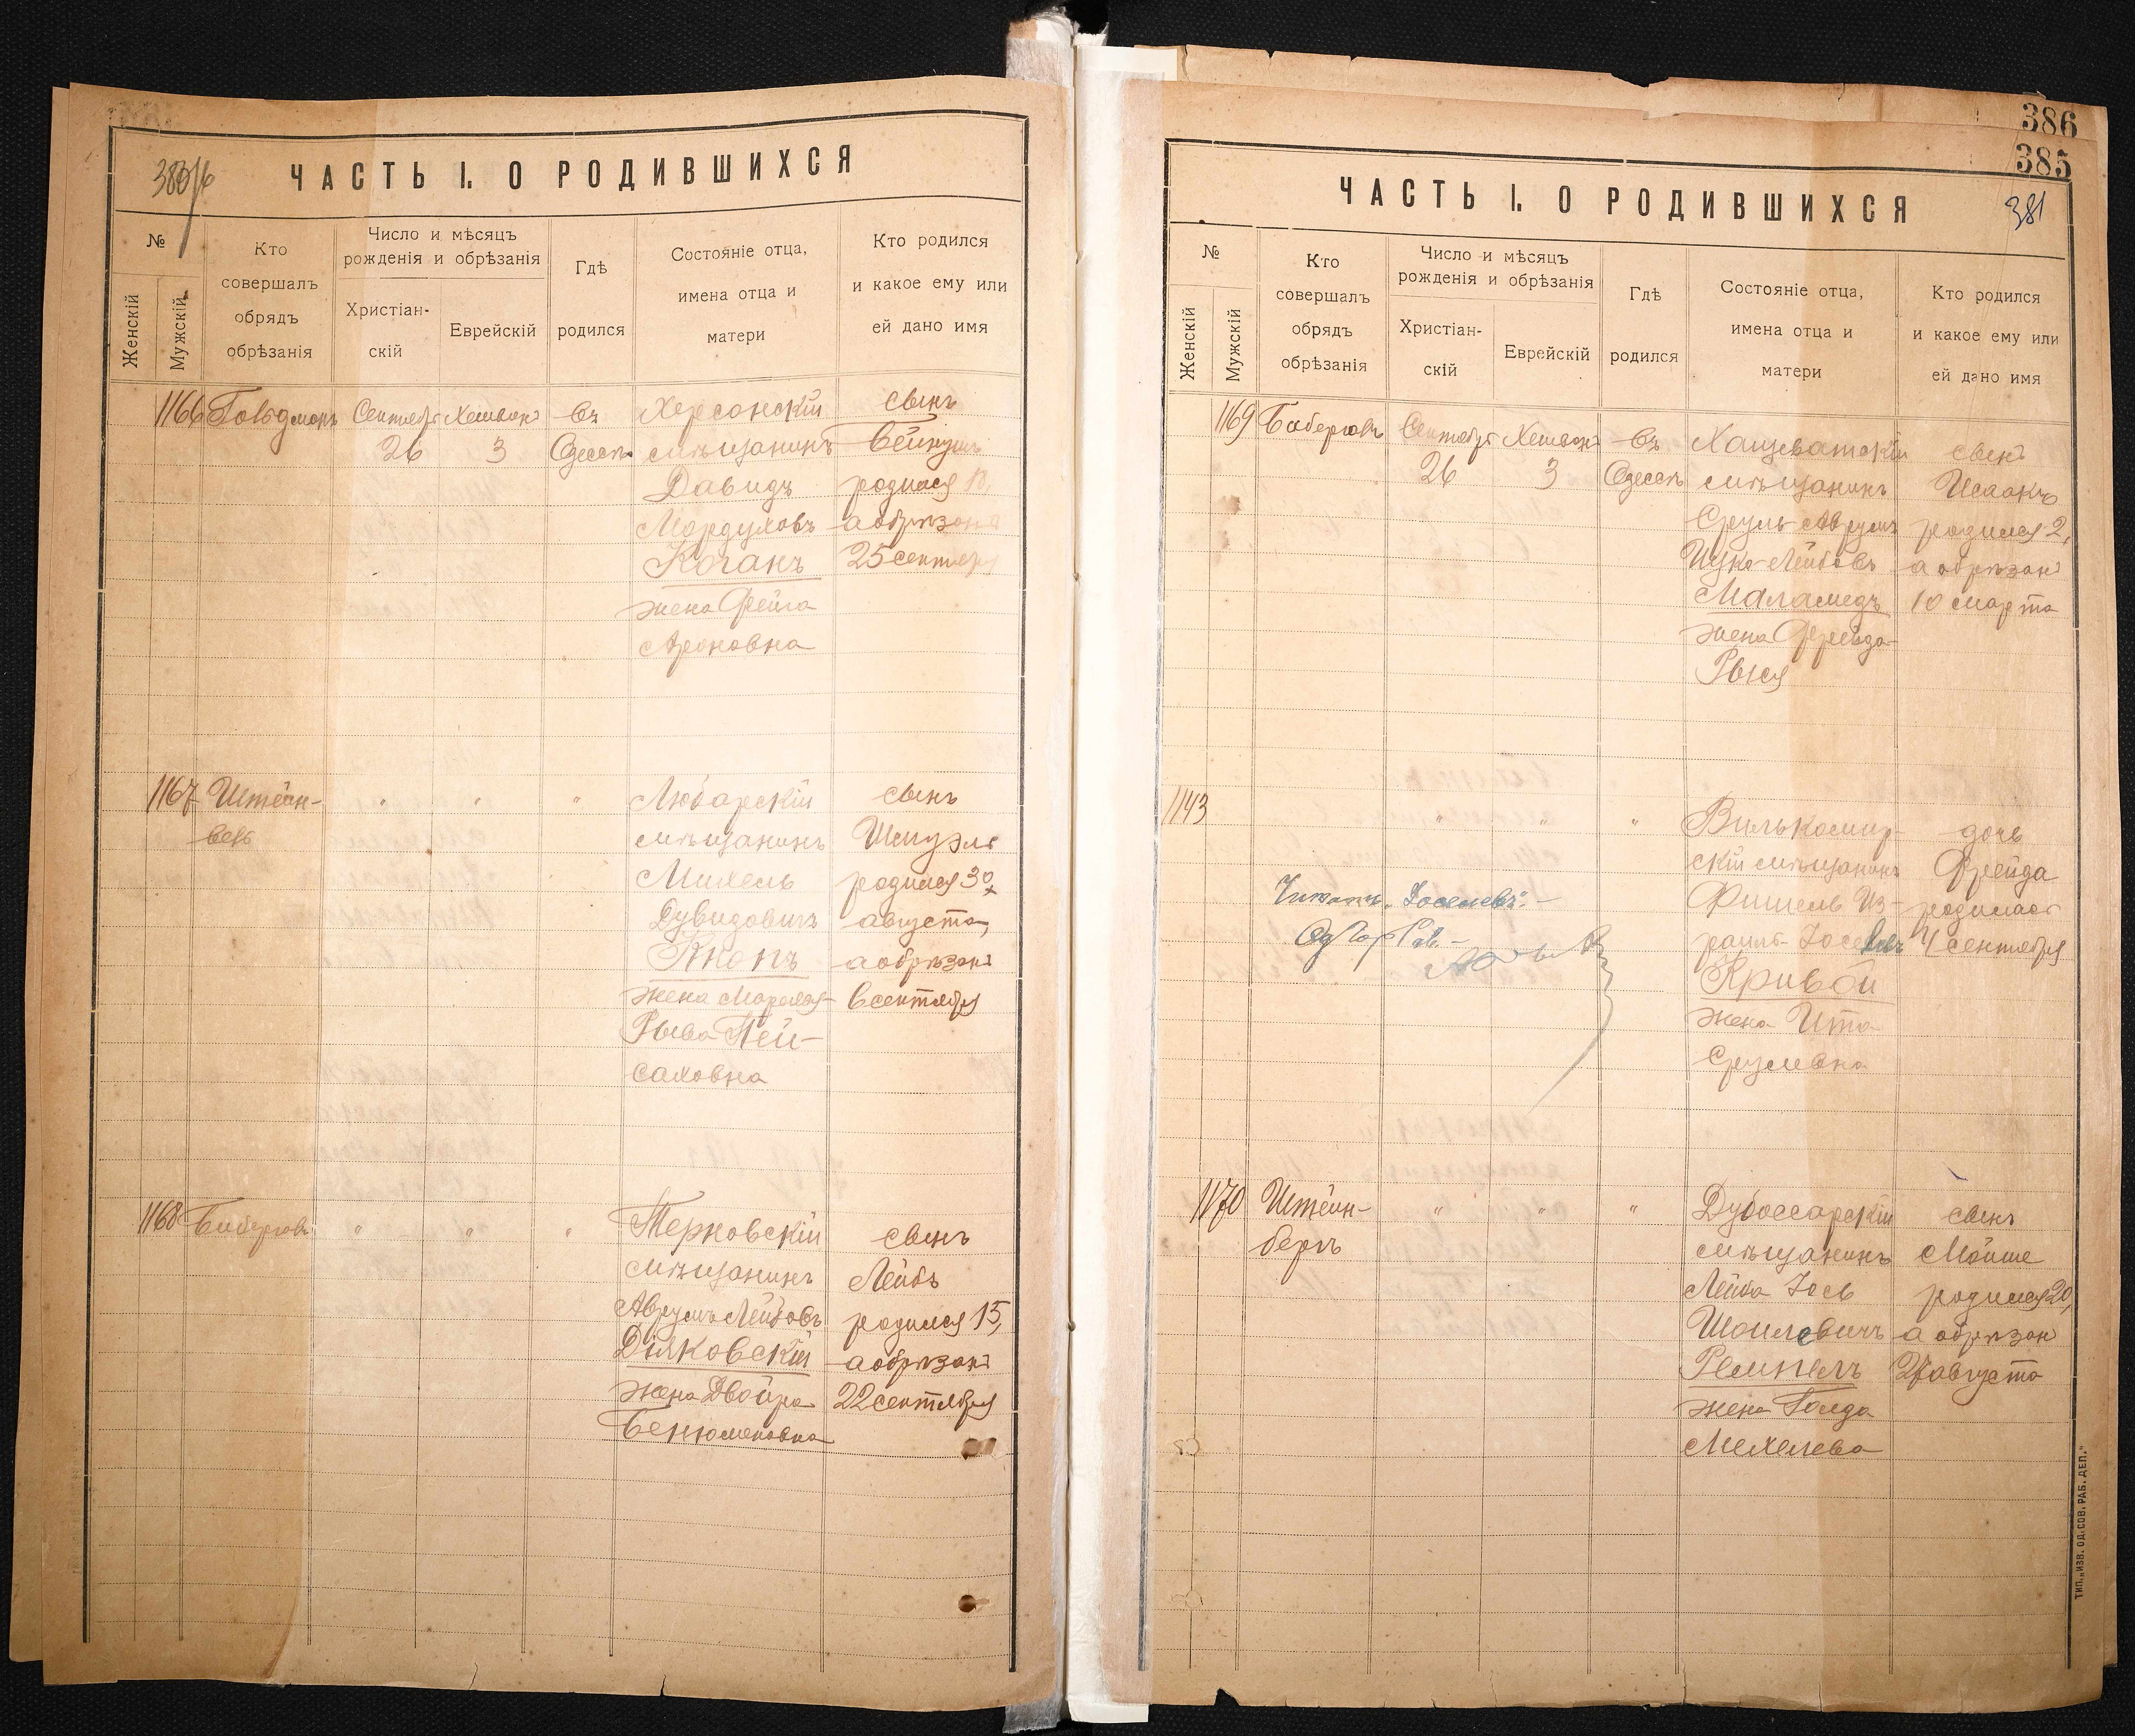 ЧАСТЬ I. О РОДИВШИХСЯ
№
Женскій
Мужскій
Кто
совершалъ
обрядъ
обрѣзанія
Число и мѣсяцъ
рожденія и обрѣзанія
Христіан-
скій
Еврейскій
Гдѣ
родился
Состояніе отца,
имена отца и
матери
Кто родился
и какое ему или
ей дано имя
1166
Сентября
26
Хешвонъ
3
Въ
Одессѣ
Херсонскій
мѣщанинъ
Давидъ
Мордуховъ
Коганъ
жена Фейга
Ароновна
сынъ
родился 18,
а обрѣзанъ
25 сентября
1167
Штейн-
" " "
Любарскій
мѣщанинъ
Михель
Дувидовичъ
Кнопъ
жена
Рыва Пей-
саховна
сынъ
Шмуэль
родился 30
августа,
а обрѣзанъ
6 сентября
1168
" " "
Терновскій
мѣщанинъ
Аврумъ Лейбовъ
Дьяковскій
жена Двойра
Бенюменовна
сынъ
Лейбъ
родился 15,
а обрѣзанъ
22 сентября
386
385
381
ЧАСТЬ I. О РОДИВШИХСЯ
№
Женскій
Мужскій
Кто
совершалъ
обрядъ
обрѣзанія
Число и мѣсяцъ
рожденія и обрѣзанія
Христіан-
скій
Еврейскій
Гдѣ
родился
Состояніе отца,
имена отца и
матери
Кто родился
и какое ему или
ей дано имя
1169
Сентября
26
Хешвонъ
3
Въ
Одессѣ
Хащеватскій
мѣщанинъ
Сруль-Аврумъ
Ицко-Лейбовъ
Маламедъ
жена Фрейда-
Рыся
сынъ
Исаакъ
родился 2,
а обрѣзанъ
10 марта
1143
" " "
Вилькомир-
скій мѣщанинъ
Фишель Из-
раиль Іоселевъ
Кривой
жена Ита
Срулевна
дочь
Фрейда
родилась
4 сентября
Читать „Іоселевъ“. —
1170
Штейн-
бергъ
" " "
Дубоссарскій
мѣщанинъ
Лейба Іось
Шоилевичъ
Ремпель
жена Голда
Мехелева
сынъ
Мойше
родился 20,
а обрѣзан
27 августа
ТИП. „ИЗВ. ОД. СОВ. РАБ. ДЕП.“